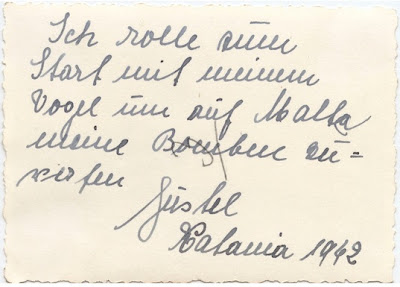 Ich rolle zum
Start mit meinem
Vogel um auf Malta
meine Bomben zu=
werfen
Güstel
Catania 1942